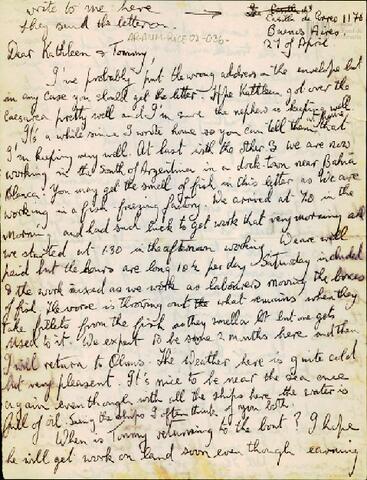 write to me here,
they send the letter on.
→ Casilla de Correo 1176
Buenos Aires,
27 of April
ARAUM-RICE 02-036
Dear Kathleen & Tommy,
I've probably put the wrong address on the envelope but
in any case you should get the letter. Hope Kathleen got over the
caesurea pretty well and I'm sure the nephew is keeping well.
It's a while since I wrote home so you can tell them that
I'm keeping very well. At last with the other 3 we are now
working in the South of Argentinia in a dock-town near Bahia
Blanca. You may get the smell of fish in this letter as we are
working in a fish-freezing factory. We arrived at 7.0 in the
morning and had such luck to get work that very morning and
we started at 1.30 in the afternoon working. We are well
paid but the hours are long 10½ per day Saturday included
& the work mixed as we work as labourers moving the boxes
of fish. The worse is throwing out the what remains when they
take fillets from the fish as they smell a lot but one gets
used to it. We expect to be some 2 months here and then
I will return to Olmos. The weather here is quite cold
but very pleasent. It's nice to be near the sea once
again even though with all the ships here the water is
full of oil. Seeing the ships I often think of you both.
When is Tommy returning to the boat? I hope
he will get work on land soon even though earning